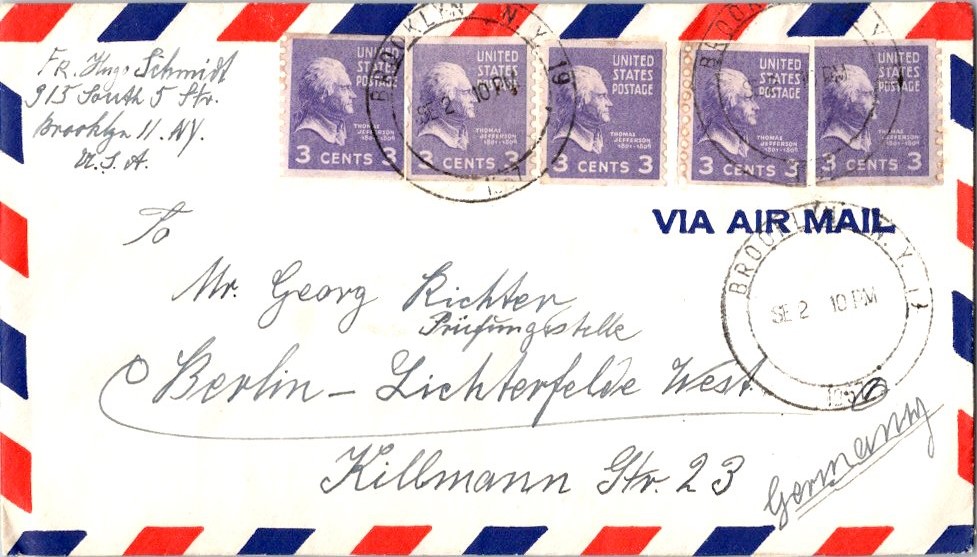 Fr. Hugo Schmidt
915 South 5 Str.
Brooklyn 11. NY.
U.S.A.
UNITED STATES POSTAGE
THOMAS JEFFERSON
1801-1809
3 CENTS 3
UNITED STATES POSTAGE
THOMAS JEFFERSON
1801-1809
3 CENTS 3
UNITED STATES POSTAGE
THOMAS JEFFERSON
1801-1809
3 CENTS 3
UNITED STATES POSTAGE
THOMAS JEFFERSON
1801-1809
3 CENTS 3
UNITED STATES POSTAGE
THOMAS JEFFERSON
1801-1809
3 CENTS 3
BROOKLYN N.Y. 19
SE 2 10 PM
BROOKLYN
PM
VIA AIR MAIL
BROOKLYN N.Y.
SE 2 10 PM
To
Mr. Georg Richter
Prüfungsstelle
Berlin - Lichterfelde West
Killmann Str. 23
Germany